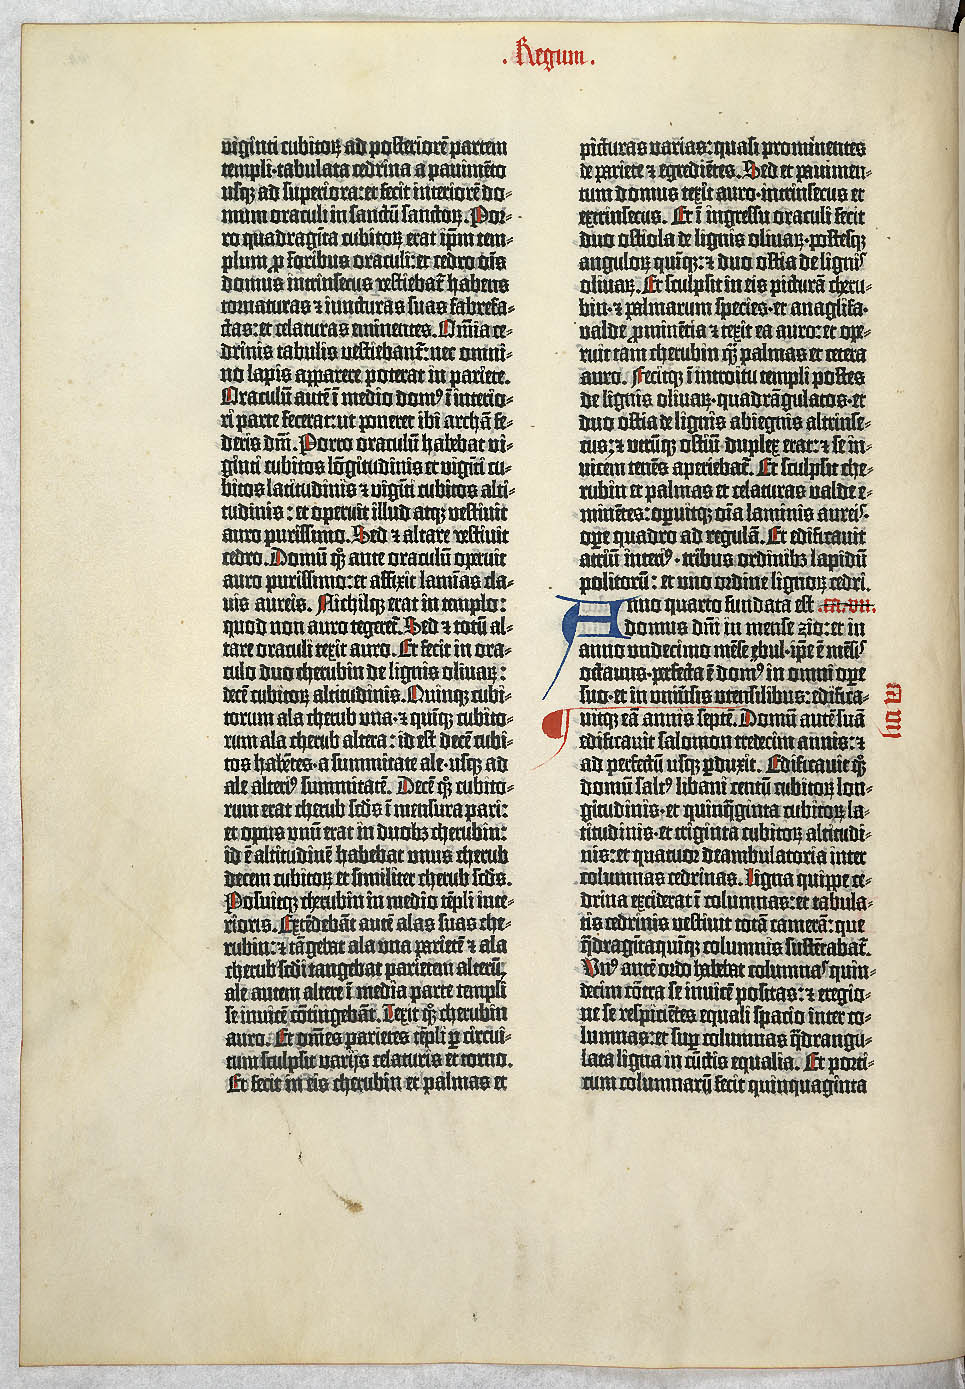 . Regum .
viginti cubitoꝝ ad posteriorē partem
templi·tabulata cedrina a pavimēto
usqꝫ ad superiora: et fecit interiorē do-
mum oraculi in sanctū sanctoꝝ. Por-
ro quadragīta cubitoꝝ erat ip̄m tem-
plum ꝓ foribus oraculi: et cedro oīs
domus intrinsecus vestiebat᷑ habens
tornaturas ⁊ iuncturas suas fabrefa-
ctas: et celaturas eminentes. Om̄ia ce-
drinis tabulis vestiebant᷑: nec omni-
no lapis apparere poterat in pariete.
Oraculū autē ī medio domꝰ ī interio-
ri parte fecerat: ut poneret ibi archā fe-
deris dn̄i. Porro oraculū habebat vi-
ginti cubitos lōgitudinis et vigīti cu-
bitos latitudinis ⁊ vigīti cubitos alti-
tudinis: et operuit illud atqꝫ vestivit
auro purissimo. Sed ⁊ altare vestivit
cedro. Domū qꝫ ante oraculū operuit
auro purissimo: et affixit lamīas cla-
vis aureis. Nichilqꝫ erat in templo:
quod non auro tegeret᷑. Sed ⁊ totū al-
tare oraculi texit auro. Et fecit in ora-
culo duo cherubin de lignis olivaꝝ:
decē cubitoꝝ altitudinis. Quinqꝫ cubi-
torum ala cherub una·⁊ quīqꝫ cubito-
rum ala cherub altera: id est decē cubi-
tos habētes·a summitate ale·usqꝫ ad
ale alteriꝰ summitatē. Decē qꝫ cubito-
rum erat cherub scd̄s ī mensura pari:
et opus unū erat in duobꝫ cherubin:
id ē altitudinē habebat unus cherub
decem cubitoꝝ et similiter cherub scd̄s.
Posuitqꝫ cherubin in medio tēpli inte-
rioris. Extēdebāt autē alas suas che-
rubin: ⁊ tāgebat ala una parietē ⁊ ala
cherub scd̄i tangebat parietem alterū,
ale autem altere ī media parte templi
se invicē cōtingebāt. Texit qꝫ cherubin
auro. Et om̄es parietes tēpli ꝑ circui-
tum sculpsit varijs celaturis et torno.
Et fecit in eis cherubin et palmas et
picturas varias: quasi prominentes
de pariete ⁊ egrediētes. Sed et pavimen-
tum domus texit auro·intrinsecus et
extrinsecus. Et ī ingressu oraculi fecit
duo ostiola de lignis olivaꝝ·postesqꝫ
anguloꝝ quīqꝫ: ⁊ duo ostia de lignis
olivaꝝ. Et sculpsit in eis picturā cheru-
bin·⁊ palmarum species·et anaglifa·
valde prominētia ⁊ texit ea auro: et ope-
ruit tam cherubin qꝫ palmas et cetera
auro. Fecitqꝫ ī introitu templi postes
de lignis olivaꝝ·quadrāgulatos·et
duo ostia de lignis abiegnis altrinse-
cus: ⁊ utrūqꝫ ostiū duplex erat: ⁊ se in-
vicem tenēs aperiebat᷑. Et sculpsit che-
rubin et palmas et celaturas valde e-
minētes: oꝑuitqꝫ oīa laminis aureis·
oꝑe quadro ad regulā. Et edificavit
atriū interiꝰ·tribus ordinibꝫ lapidū
politorū: et uno ordine lignoꝝ cedri.
Anno quarto fundata est
domus dn̄i in mense zio: et in
anno undecimo mēse ebul·ip̄e ē mēsis
octavus·perfecta ē domꝰ in omni oꝑe
suo·et in univ̄sis utensilibus: edifica-
vitqꝫ eā annis septē. Domū autē suā
VII
edificavit salomon tredecim annis: ⁊
ad perfectū usqꝫ ꝑduxit. Edificavit qꝫ
domū saltꝰ libani centū cubitoꝝ lon-
gitudinis·et quinq̄ginta cubitoꝝ la-
titudinis·et triginta cubitoꝝ altitudi-
nis: et quatuor deambulatoria inter
columnas cedrinas. Ligna quippe ce-
drina exciderat ī columnas: et tabula-
tis cedrinis vestivit totā camerā: que
q̄dragītaquīqꝫ columnis sustētabat᷑.
Unꝰ autē ordo habebat columnas quin-
decim cōtra se invicē positas: ⁊ eregio-
ne se respiciētes equali spacio inter co-
lumnas: et suꝑ columnas q̄drangu-
lata ligna in cūctis equalia. Et porti-
cum columnarū fecit quinquaginta